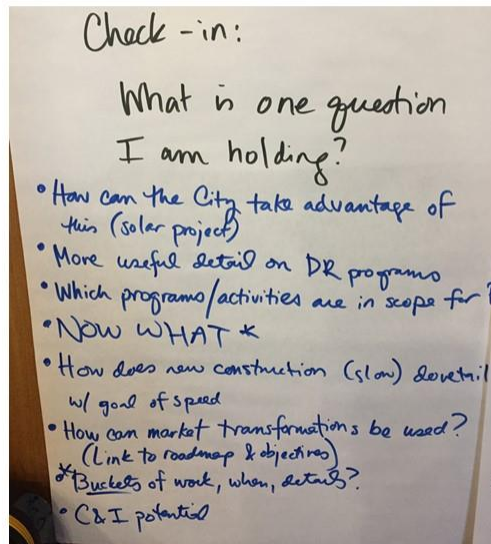 Check-in:
What is one question
I am holding?
• How can the City take advantage of
this (solar project)
• More useful detail on DR programs
• Which programs/activities are in scope for ?
• NOW WHAT *
• How does new construction (slow) dovetail
w/ goal of speed
• How can market transformations be used?
(Link to roadmap & objectives)
* Buckets of work, when, details?
• C&I potential